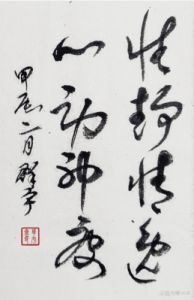 性静情逸
心动神疲
甲辰二月